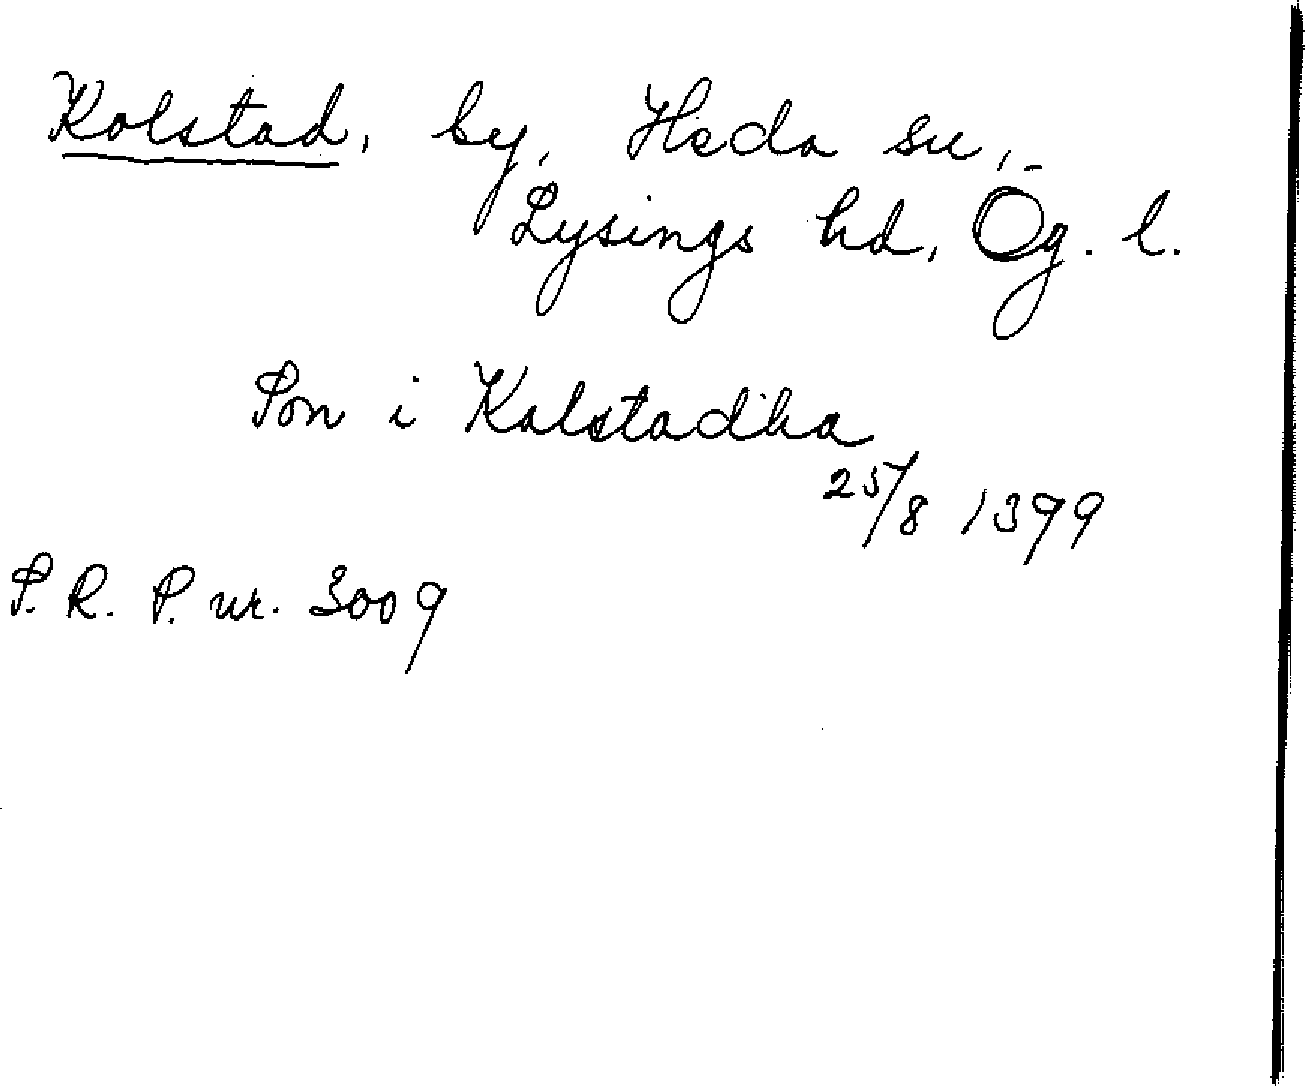 Kolstad, by, Heda sn,
Lysings hd, Ög. l.
Jon i Kalstadha
25/8 1399
S. R. P. nr. 3009